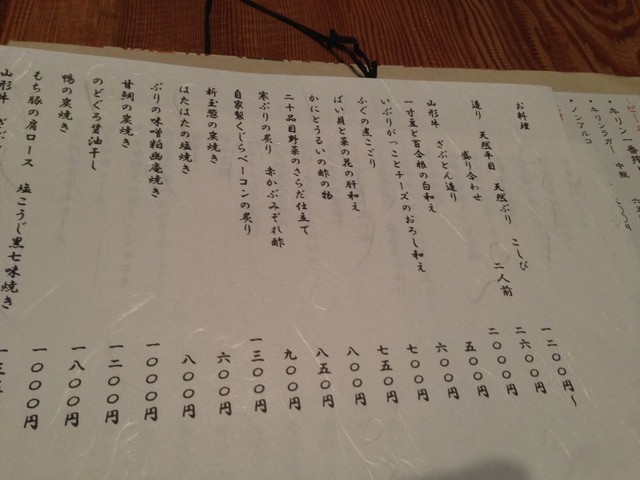 ビー
・キリン一番搾
・キリンラガー 中瓶
・ノンアルコ
お料理
造り 天然平目 天然ぶり こしび 一二〇〇円~
盛り合わせ 二人前 二六〇〇円
山形牛 ざぶとん造り 二〇〇〇円
一寸豆と百合根の白和え 五〇〇円
いぶりがっことチーズのおろし和え 六〇〇円
ふぐの煮こごり 七〇〇円
ばい貝と菜の花の肝和え 七五〇円
かにとうるいの酢の物 八〇〇円
二十品目野菜のさらだ仕立て 八五〇円
寒ぶりの炙り 赤かぶみぞれ酢 九〇〇円
自家製くじらベーコンの炙り 一三〇〇円
新玉葱の炭焼き 六〇〇円
はたはたの塩焼き 八〇〇円
ぶりの味噌粕幽庵焼き 一〇〇〇円
甘鯛の炭焼き 一二〇〇円
のどぐろ醤油干し 一八〇〇円
鴨の炭焼き 一〇〇〇円
もち豚の肩ロース 塩こうじ黒七味焼き 一三
山形牛 ざぶ